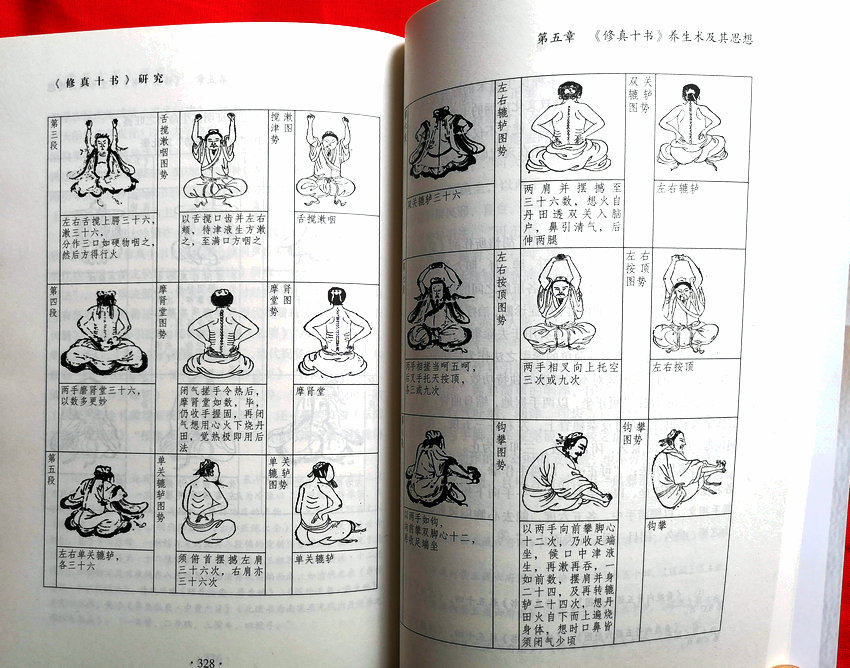 《修真十书》研究
第三段
舌搅漱咽图势
搅漱津图势
左右舌搅上腭三十六，
漱三十六，
分作三口如硬物咽之，
然后方得行火
以舌搅口齿并左右
颊，待津液生方漱
之，至满口方咽之
舌搅漱咽
第四段
摩肾堂图势
摩肾堂图势
两手磨肾堂三十六，
以数多更妙
闭气搓手令热后，
摩肾堂如数，毕，
仍收手握固，再闭
气想用心火下烧丹
田，觉热极即用后
法
摩肾堂
第五段
单关辘轳图势
单关辘轳图势
左右单关辘轳，
各三十六
须俯首摆撼左肩
三十六次，右肩亦
三十六次
单关辘轳
·328·
第五章 《修真十书》养生术及其思想
左右辘轳图势
双关辘轳图势
双关辘轳三十六
两肩并摆撼至
三十六数，想火自
丹田透双关入脑
户，鼻引清气，后
伸两腿
左右辘轳
左右按顶图势
左右按顶图势
两手相搓当呵五呵，
后叉手托天按顶，
各三或九次
两手相叉向上托空
三次或九次
左右按顶
钩攀图势
钩攀图势
以两手如钩，
向前攀双脚心十二，
收足端坐
以两手向前攀脚心
十二次，乃收足端
坐，候口中津液
生，再漱再吞，一
如前数，摆肩并身
二十四，及再转辘
轳二十四次，想丹
田火自下而上遍烧
身体，想时口鼻皆
须闭气少顷
钩攀